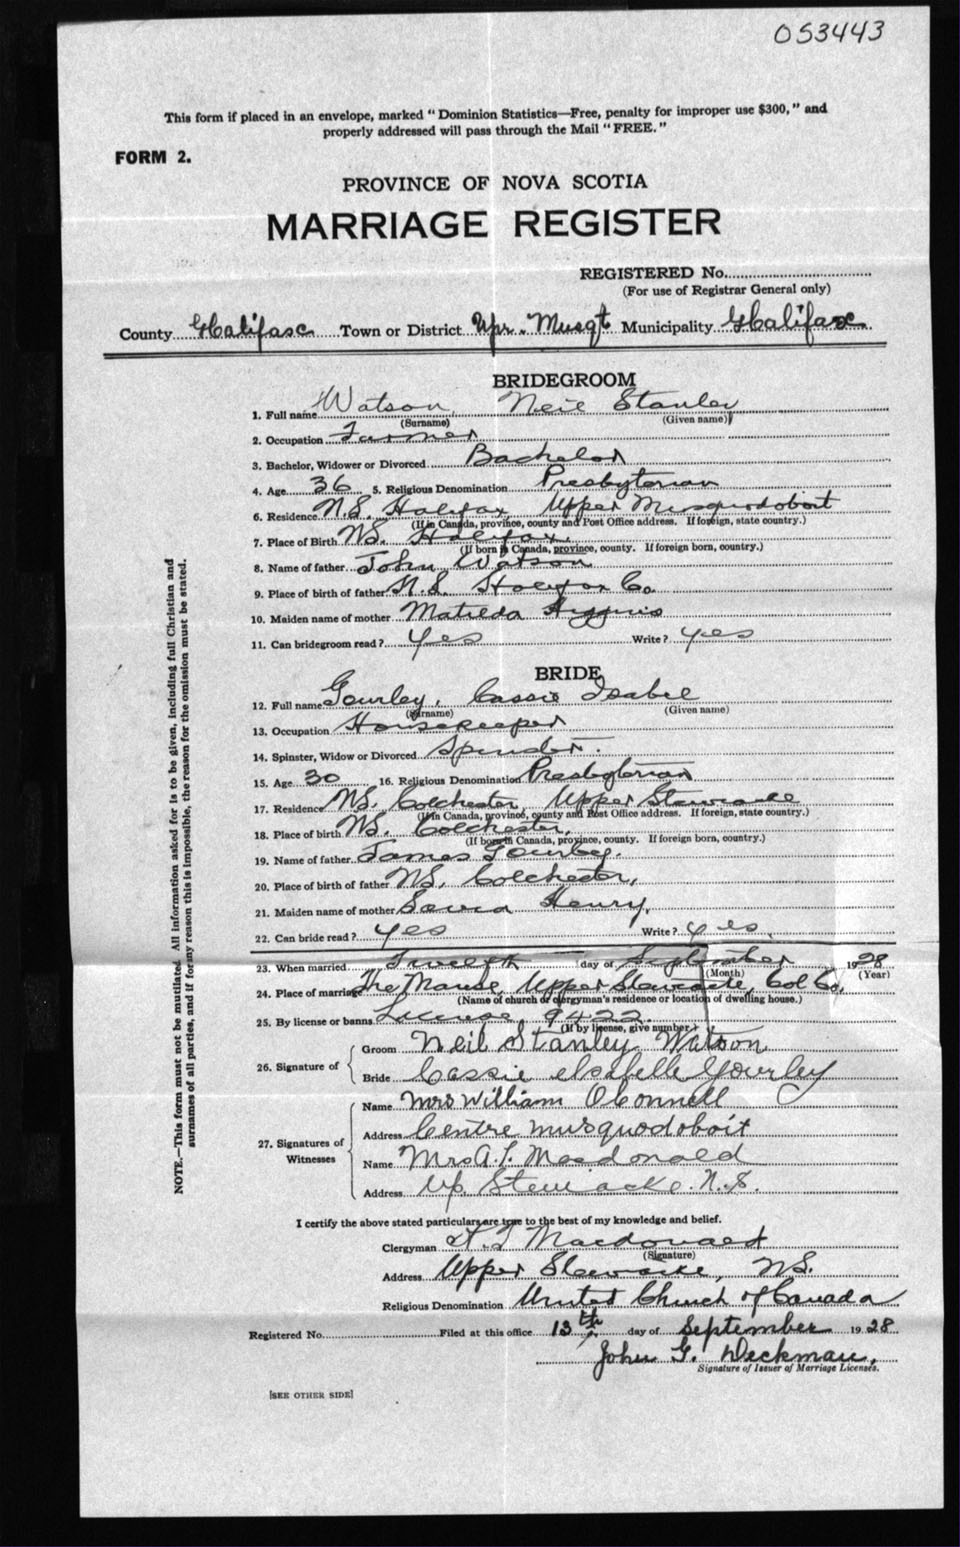 053443
This form if placed in an envelope, marked "Dominion Statistics—Free, penalty for improper use $300," and
properly addressed will pass through the Mail "FREE."
FORM 2.
PROVINCE OF NOVA SCOTIA
MARRIAGE REGISTER
REGISTERED No.
(For use of Registrar General only)
County Halifax Town or District Upr. Musqt Municipality Halifax
BRIDEGROOM
1. Full name Watson, Neil Stanley
(Surname) (Given name)
2. Occupation Farmer
3. Bachelor, Widower or Divorced Bachelor
4. Age 36 5. Religious Denomination Presbyterian
6. Residence N.S. Halifax, Upper Musquodoboit
(If in Canada, province, county and Post Office address. If foreign, state country.)
7. Place of Birth N.S. Halifax.
(If born in Canada, province, county. If foreign born, country.)
8. Name of father John Watson
9. Place of birth of father N.S. Halifax Co.
10. Maiden name of mother Matilda Higgins
11. Can bridegroom read? Yes Write? Yes
BRIDE
12. Full name Gourley, Cassie Isabel
(Surname) (Given name)
13. Occupation Housekeeper
14. Spinster, Widow or Divorced Spinster.
15. Age 30 16. Religious Denomination Presbyterian
17. Residence N.S. Colchester, Upper Stewiacke
(If in Canada, province, county and Post Office address. If foreign, state country.)
18. Place of birth N.S. Colchester,
(If born in Canada, province, county. If foreign born, country.)
19. Name of father James Gourley.
20. Place of birth of father N.S. Colchester,
21. Maiden name of mother Henry,
22. Can bride read? Yes Write? Yes,
23. When married Twelfth day of September 1928
(Month) (Year)
24. Place of marriage The Manse, Upper Stewiacke, Col Co.
(Name of church or clergyman's residence or location of dwelling house.)
25. By license or banns License 9422
(If by license, give number)
26. Signature of
Groom Neil Stanley Watson
Bride Cassie Isabelle Gourley
27. Signatures of Witnesses
Name Mrs William O'Connell
Address Centre Musquodoboit
Name Mrs A. T. Macdonald
Address Up. Stewiacke. N.S.
I certify the above stated particulars are true to the best of my knowledge and belief.
Clergyman A. T. Macdonald
(Signature)
Address Upper Stewiacke, N.S.
Religious Denomination United Church of Canada
Registered No. Filed at this office 13th day of September 1928
John G. Deckman,
Signature of Issuer of Marriage Licenses.
[SEE OTHER SIDE]
NOTE.—This form must not be mutilated. All information asked for is to be given, including full Christian and
surnames of all parties, and if for any reason this is impossible, the reason for the omission must be stated.